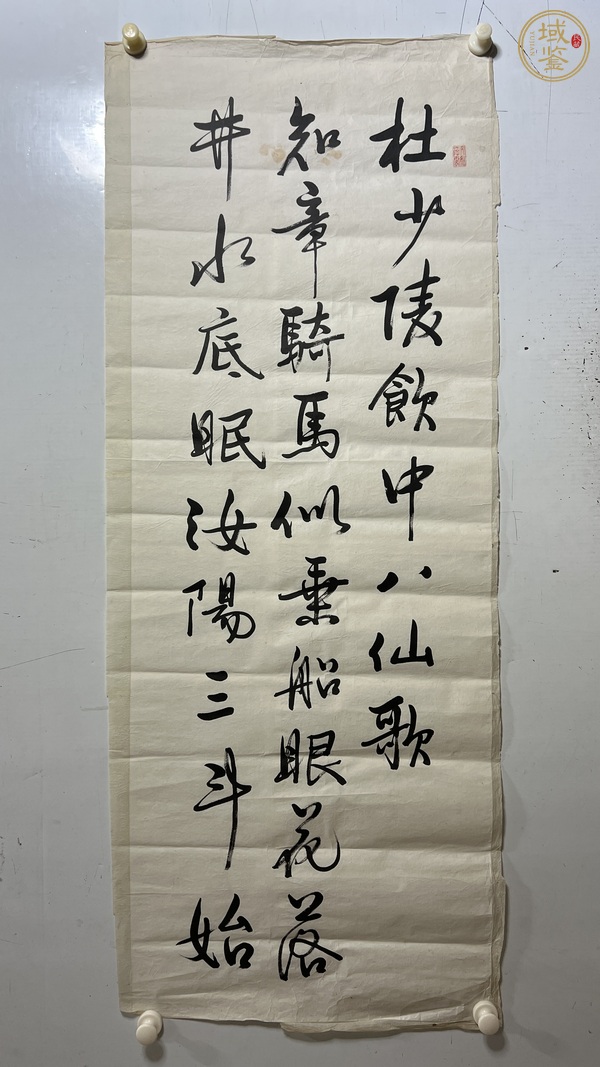 杜少陵飲中八仙歌
知章騎馬似乗船眼花落
井水底眠汝陽三斗始
域鉴